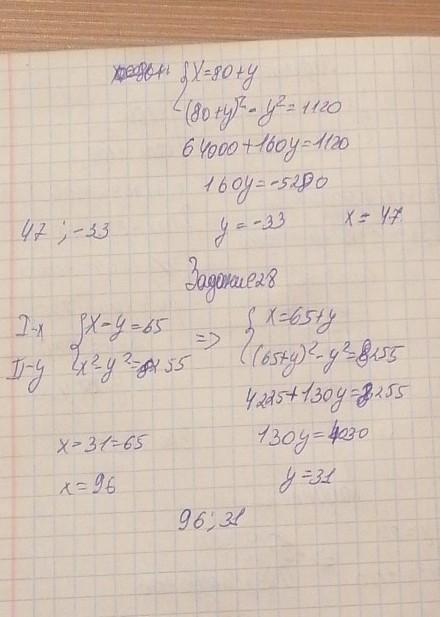 { x=80+y
(80+y)²-y²=1120
64000+160y=1120
160y=-5280
47 ; -33 y=-33 x=47
Задание 28
I-x { x-y=65 => { x=65+y
II-y x²-y²=8255 (65+y)²-y²=8255
4225+130y=8255
x-31=65 130y=4030
x=96 y=31
96; 31